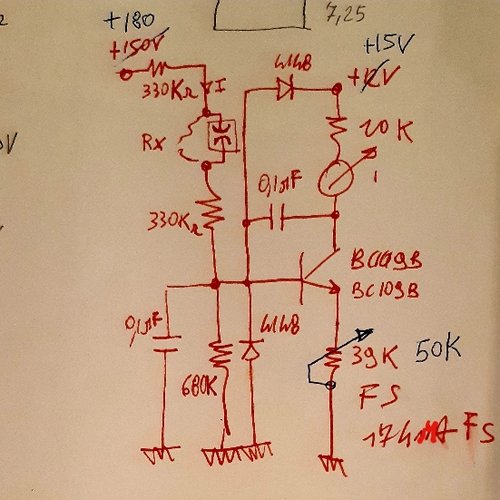 7,25
+180
+150V
330KΩ
I
4148
+15V
+12V
20K
RX
0,1µF
330KΩ
BC109B
0,1µF
4148
680K
39K
50K
FS
FS